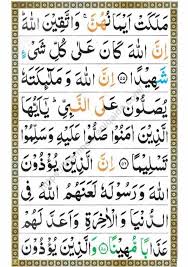 مَلَكَتْ اَيْمَانُهُنَّ ۚ وَاتَّقِيْنَ اللّٰهَ ؕ
اِنَّ اللّٰهَ كَانَ عَلٰى كُلِّ شَیْءٍ
شَهِيْدًا ﴿۵۵﴾ اِنَّ اللّٰهَ وَمَلٰٓئِكَتَهٗ
يُصَلُّوْنَ عَلَى النَّبِیِّ ؕ يٰۤاَيُّهَا
الَّذِيْنَ اٰمَنُوْا صَلُّوْا عَلَيْهِ وَسَلِّمُوْا
تَسْلِيْمًا ﴿۵۶﴾ اِنَّ الَّذِيْنَ يُؤْذُوْنَ
اللّٰهَ وَرَسُوْلَهٗ لَعَنَهُمُ اللّٰهُ فِی
الدُّنْيَا وَالْاٰخِرَةِ وَاَعَدَّ لَهُمْ
عَذَابًا مُّهِيْنًا ﴿۵۷﴾ وَالَّذِيْنَ يُؤْذُوْنَ